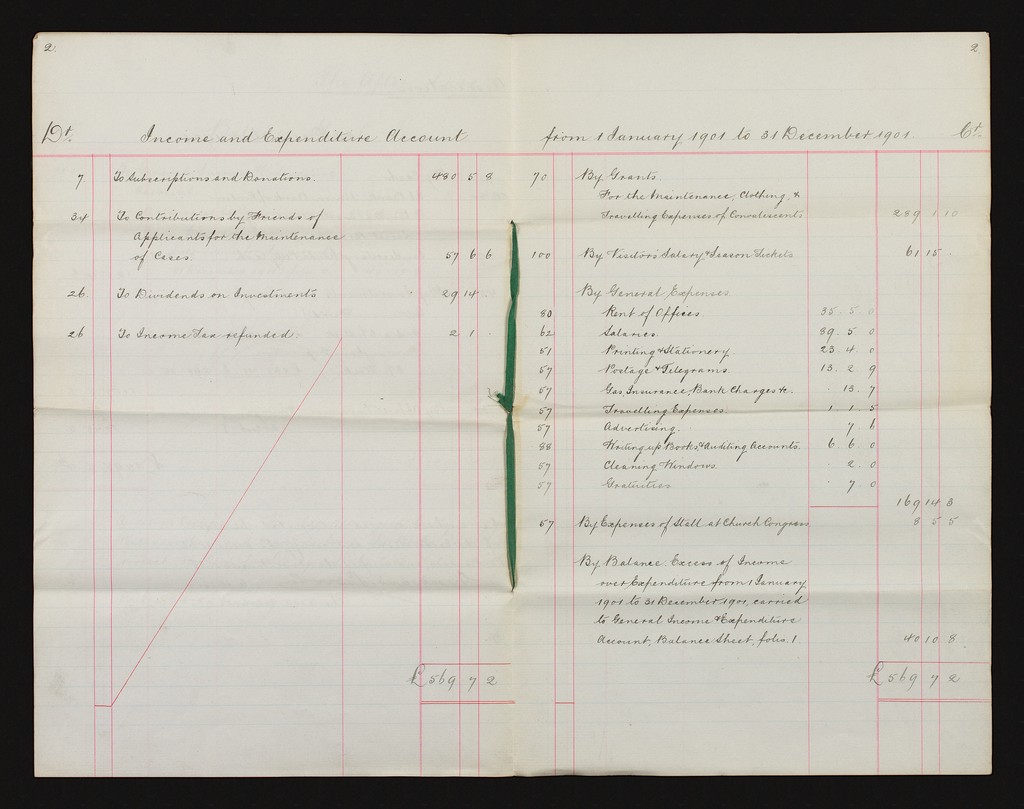 2.
2.
Dr. Income and Expenditure Account from 1 January 1901 to 31 December 1901. Cr.
7. To Subscriptions and Donations. 480 5 8
34 To Contributions by Friends of
Applicants for the Maintenance
of Cases. 57 6 6
26. To Dividends on Investments 29 14 .
26 To Income Tax refunded. 2 1 .
£569 7 2
70 By Grants.
For the Maintenance, Clothing, &
Travelling Expenses of Convalescents 289 1 10
100 By Visitors Salary & Season Tickets 61 15 .
By General Expenses
80 Rent of Offices. 35. 5. 0
62 Salaries. 89. 5. 0
51 Printing & Stationery. 23. 4. 0
57 Postage & Telegrams. 13. 2. 9
57 Gas Insurance, Bank Charges &c. . 13. 7
57 Travelling Expenses. 1. 1. 5
57 Advertising. . 7. 6
88 Writing up Books, & Auditing Accounts. 6. 6. 0
57 Cleaning Windows. . 2. 0
57 Gratuities . 7. 0
169 14 3
57 By Expenses of Stall at Church Congress 8 5 5
By Balance. Excess of Income
over Expenditure from 1 January
1901 to 31 December 1901, carried
to General Income & Expenditure
Account, Balance Sheet, folio. 1. 40 10 8
£569 7 2